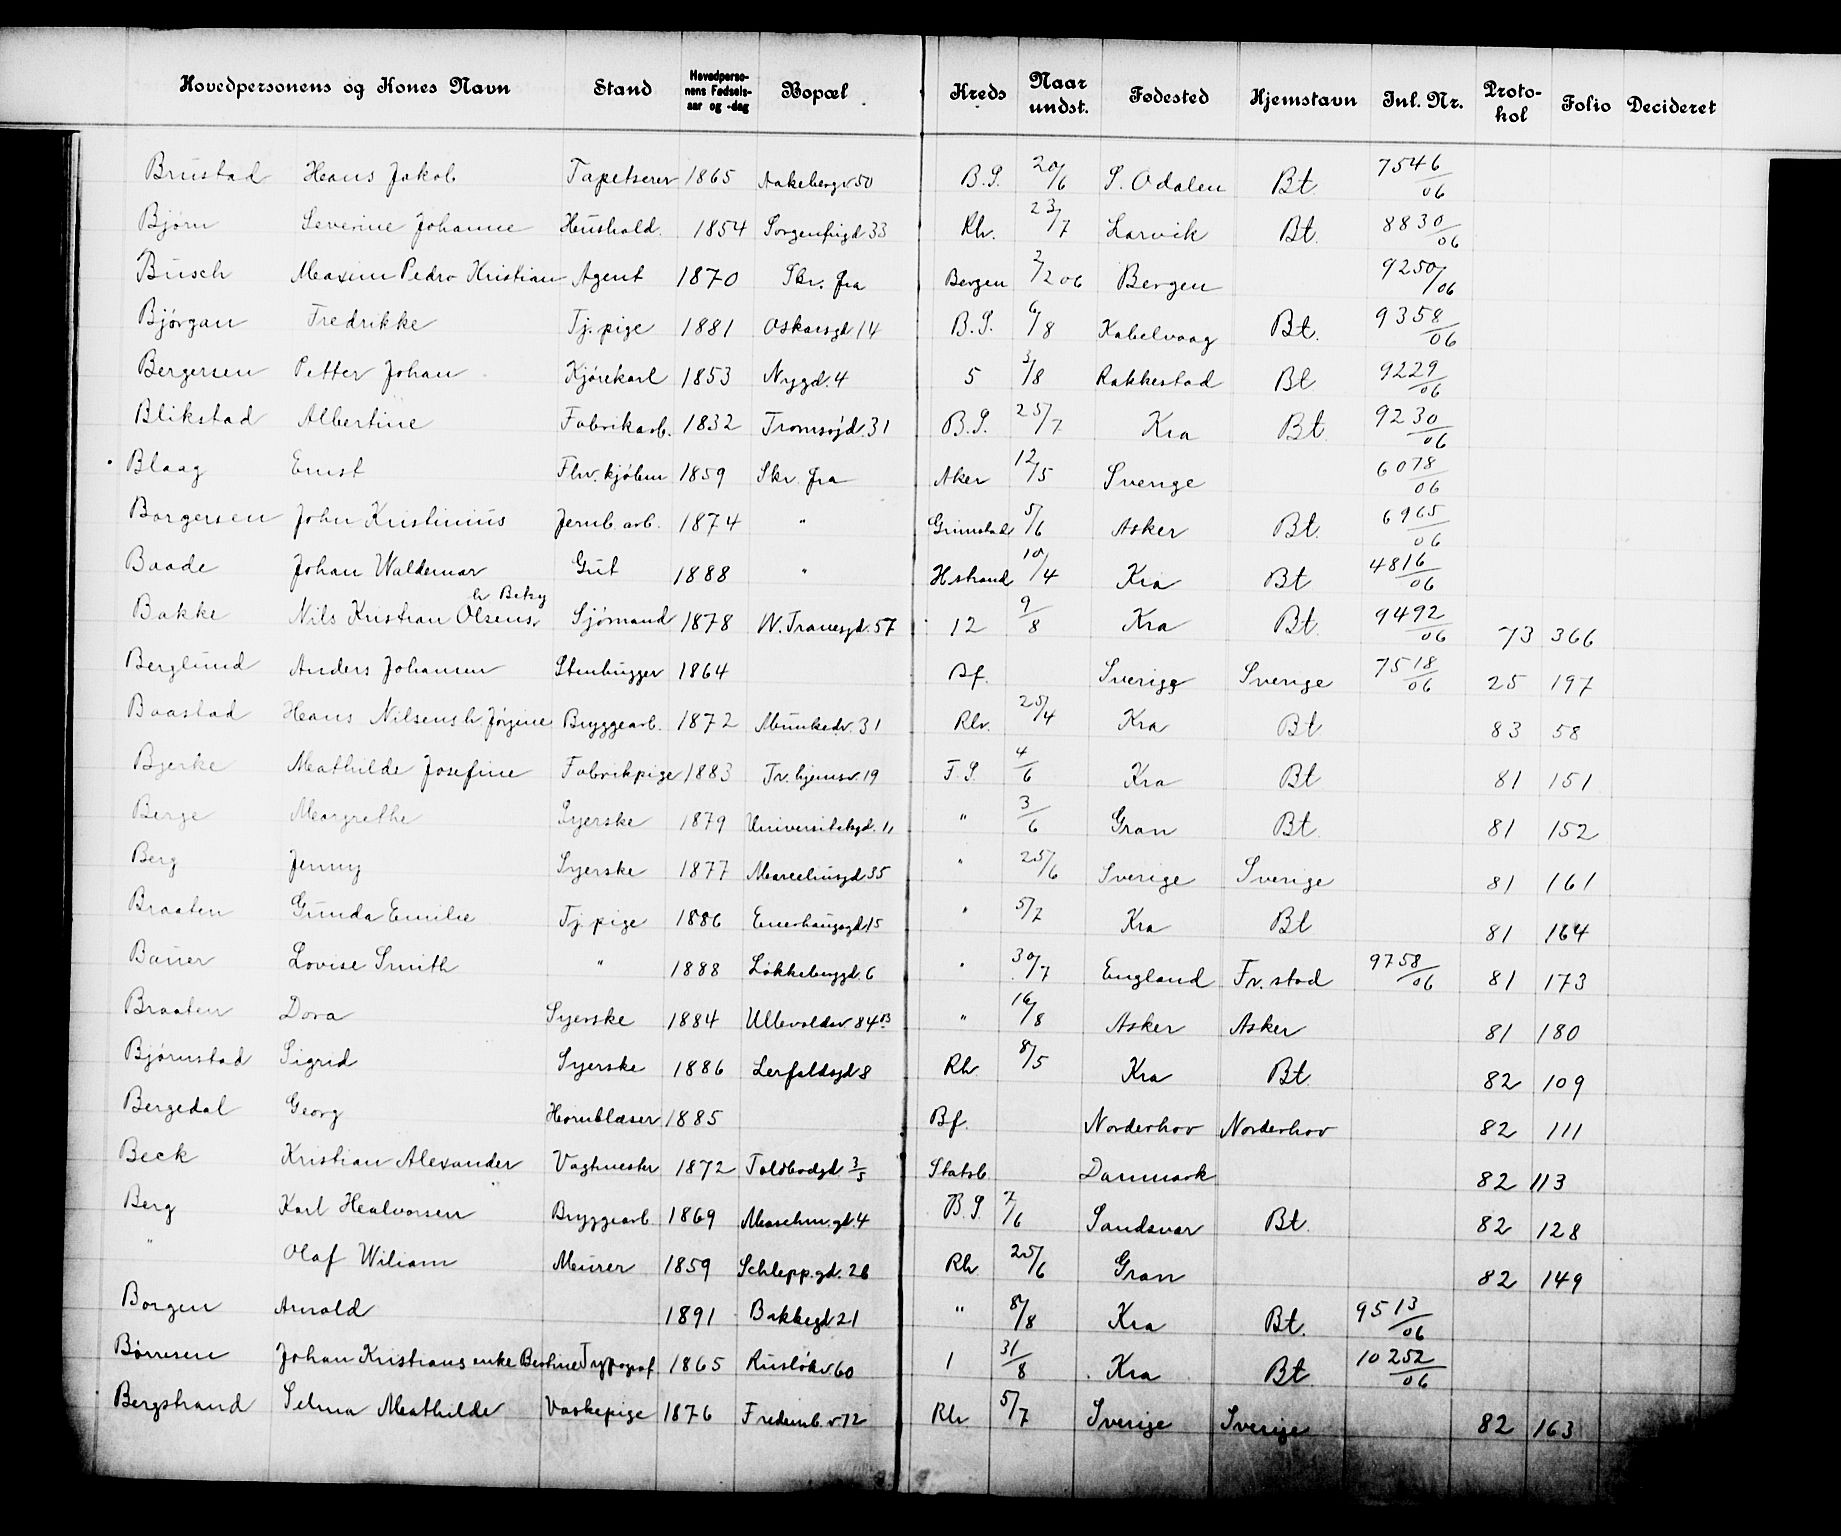 Hovedpersonens og Kones Navn Stand Hovedperso-nens Fødsels-aar og -dag Bopæl Kreds Naar undst. Fødested Hjemstavn Inl. Nr. Proto-kol Folio Decideret
Brustad Hans Jakob Tapetserer 1865 Aakebergv 50 B.S. 20/6 S. Odalen Bt 7546/06
Bjørn Severine Johanne Hushold. 1854 Sorgenfrigd 33 Rh. 23/7 Larvik Bt. 8830/06
Busch Maxim Pedro Kristian Agent 1870 Skr. fra Bergen 2/2 06 Bergen 9250/06
Bjørgan Fredrikke Tj. pige 1881 Oskarsgd 14 B.S. 6/8 Kabelvaag Bt. 9358/06
Bergersen Petter Johan Kjørekarl 1853 Nygd. 4 5 3/8 Rakkestad Bt 9229/06
Blikstad Albertine Fabrikarb. 1832 Tromsøgd. 31 B.S. 25/7 Kra Bt 9230/06
Blaag Ernst Fhv. kjøbm 1859 Skr. fra Aker 12/5 Sverige 6078/06
Borgersen John Kristinius Jernb. arb. 1874 " Grimstad 5/6 Asker Bt. 6965/06
Baade Johan Waldemar Gut 1888 " Hstrand 10/4 Kra Bt 4816/06
Bakke Nils Kristian Olsens h Betzy Sjømand 1878 W. Tranesgd. 57 12 9/8 Kra Bt. 9492/06 73 366
Berglund Anders Johansen Stenhugger 1864 Bf. Sverige Sverige 7518/06 25 197
Baastad Hans Nilsens h. Jørgine Bryggearb. 1872 Munkedv. 31 Rh. 25/4 Kra Bt 83 58
Bjerke Mathilde Josefine Fabrikpige 1883 Tr. hjemsv. 19 F.S. 4/6 Kra Bt 81 151
Berge Margrethe Syerske 1879 Universitetsgd. 11 " 3/6 Gran Bt. 81 152
Berg Jenny Syerske 1877 Marceliusgd 35 " 25/6 Sverige Sverige 81 161
Braaten Gunda Emilie Tj. pige 1886 Enerhaugsgd 15 " 5/7 Kra Bt 81 164
Bauer Lovise Smith " 1888 Løkkebergd. 6 " 30/7 England Fr. stad 9758/06 81 173
Braaten Dora Syerske 1884 Ullevoldsv 84 B " 16/8 Asker Asker 81 180
Bjørnstad Sigrid Syerske 1886 Lerfaldsgd 8 Rh. 8/5 Kra Bt 82 109
Bergedal Georg Hornblæser 1885 Bf. Norderhov Norderhov 82 111
Beck Kristian Alexander Vagtmester 1872 Toldbodgd 3/5 Statsb Danmark 82 113
Berg Karl Halvorsen Bryggearb 1869 Maschin. gd. 4 B.S. 7/6 Sandsvær Bt. 82 128
" Olaf Wiliam Murer 1859 Schlepp. gd. 26 Rh 25/6 Gran 82 149
Borgen Arnold 1891 Bakkegd 21 " 8/8 Kra Bt. 9513/06
Børresen Johan Kristians enke Bertine Typograf 1865 Ruseløkv. 60 1 31/8 Kra Bt 10252/06
Bergstrand Selma Mathilde Vaskepige 1876 Fredensb. v 12 Rh 5/7 Sverige Sverige 82 163